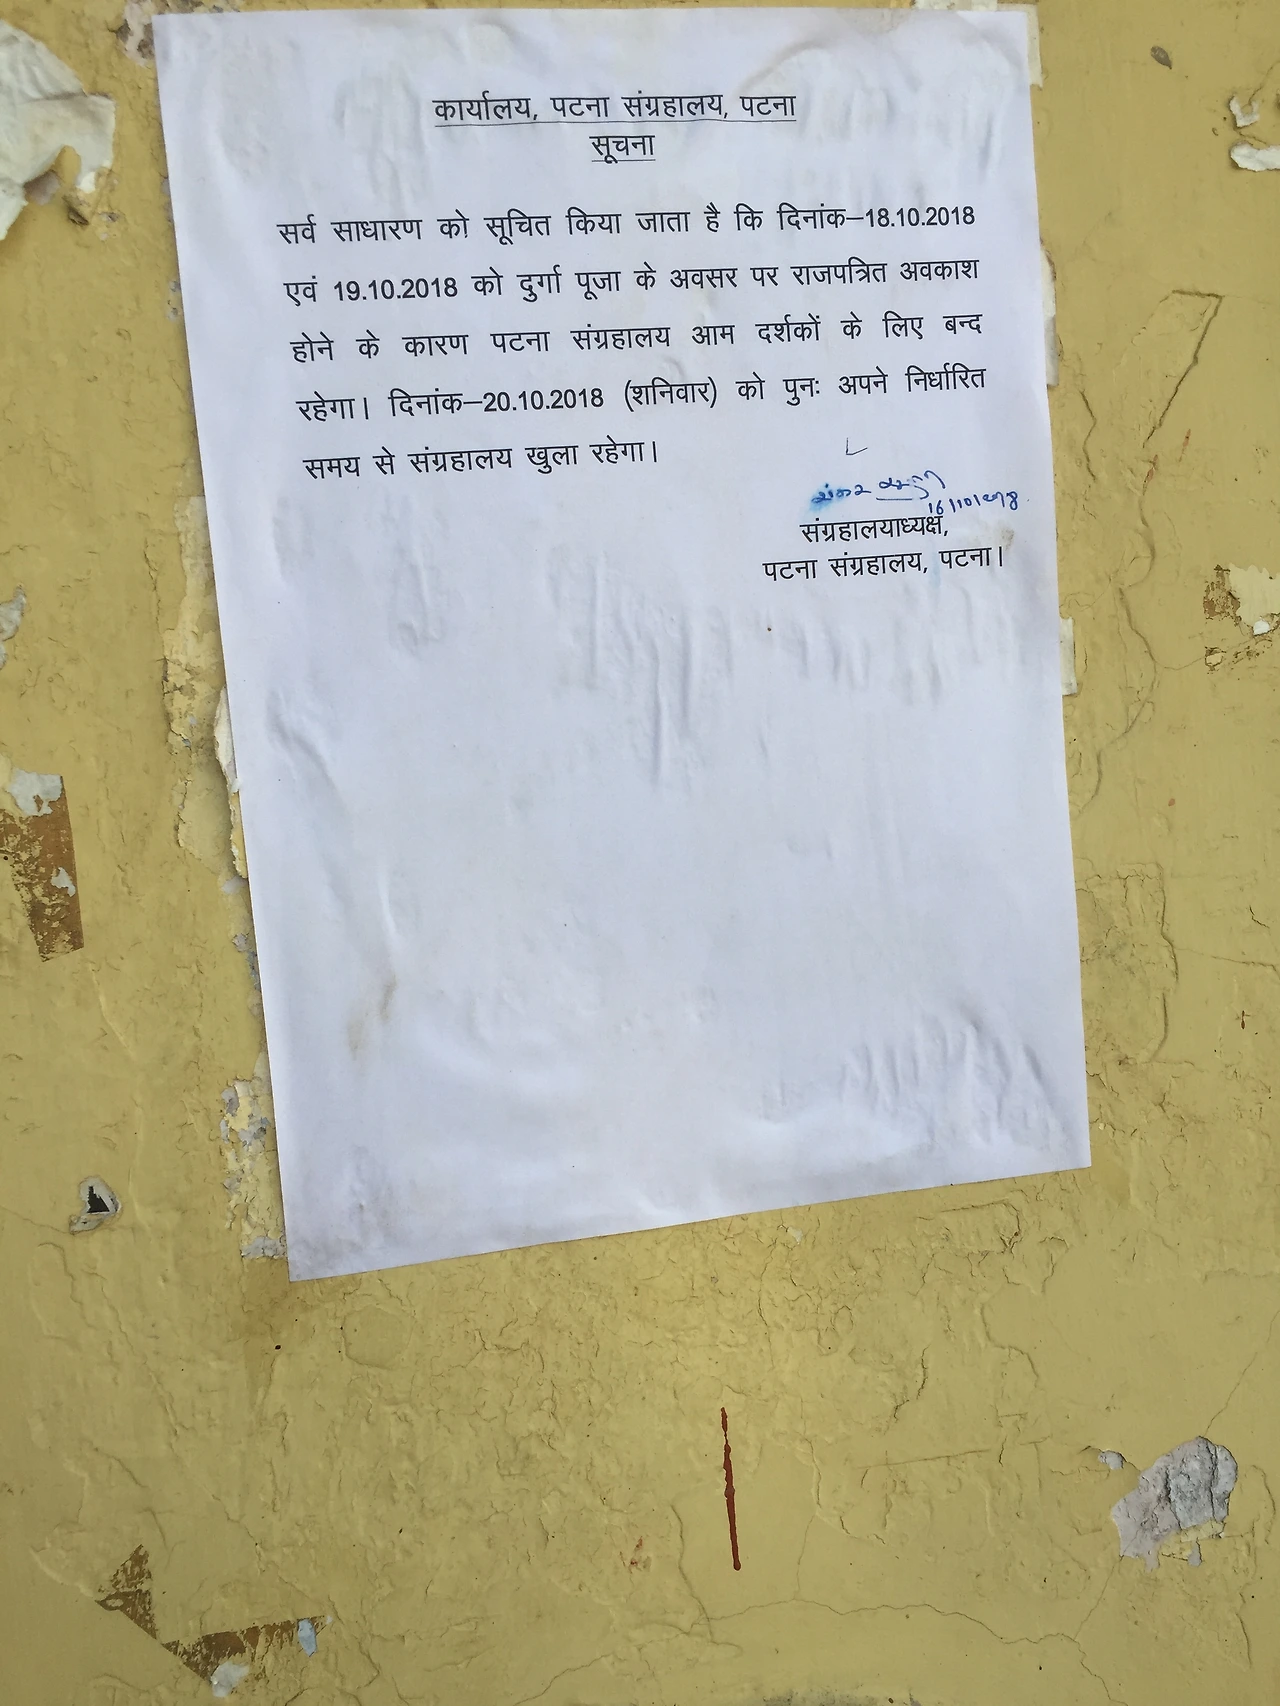 कार्यालय, पटना संग्रहालय, पटना
सूचना
सर्व साधारण को सूचित किया जाता है कि दिनांक–18.10.2018
एवं 19.10.2018 को दुर्गा पूजा के अवसर पर राजपत्रित अवकाश
होने के कारण पटना संग्रहालय आम दर्शकों के लिए बन्द
रहेगा। दिनांक–20.10.2018 (शनिवार) को पुनः अपने निर्धारित
समय से संग्रहालय खुला रहेगा।
संग्रहालयाध्यक्ष,
पटना संग्रहालय, पटना।